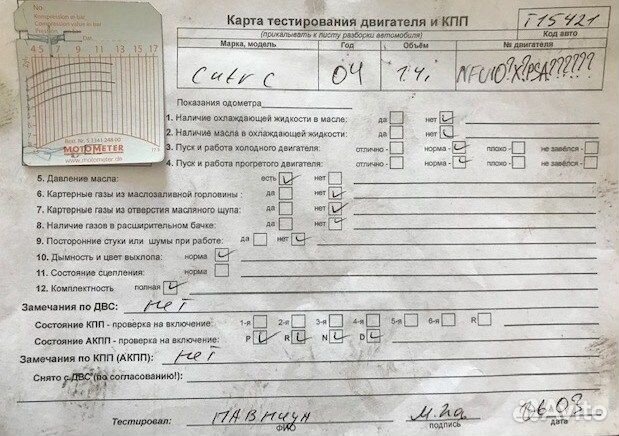 No
Kompression in bar
Compression value in bar
Pression
Dm.
4 5 7 9 11 13 15 17
Best. Nr. 5 1341 248 00
MOTOMETER
www.motometer.de
Карта тестирования двигателя и КПП
(прикалывать к листу разборки автомобиля)
T15421
Код авто
Марка, модель Год Объём № двигателя
04 1.4i
Показания одометра
1. Наличие охлаждающей жидкости в масле: да нет
2. Наличие масла в охлаждающей жидкости: да нет
3. Пуск и работа холодного двигателя: отлично - норма - плохо - не завёлся -
4. Пуск и работа прогретого двигателя: отлично - норма - плохо - не завёлся -
5. Давление масла: есть нет
6. Картерные газы из маслозаливной горловины: да нет
7. Картерные газы из отверстия масляного щупа: да нет
8. Наличие газов в расширительном бачке: да нет
9. Посторонние стуки или шумы при работе: да нет
10. Дымность и цвет выхлопа: норма
11. Состояние сцепления: норма
12. Комплектность полная
Замечания по ДВС: нет
Состояние КПП - проверка на включение: 1-я 2-я 3-я 4-я 5-я 6-я R
Состояние АКПП - проверка на включение: P R N D
Замечания по КПП (АКПП): нет
Снято с ДВС (по согласованию!):
Тестировал:
ФИО подпись дата
Avito